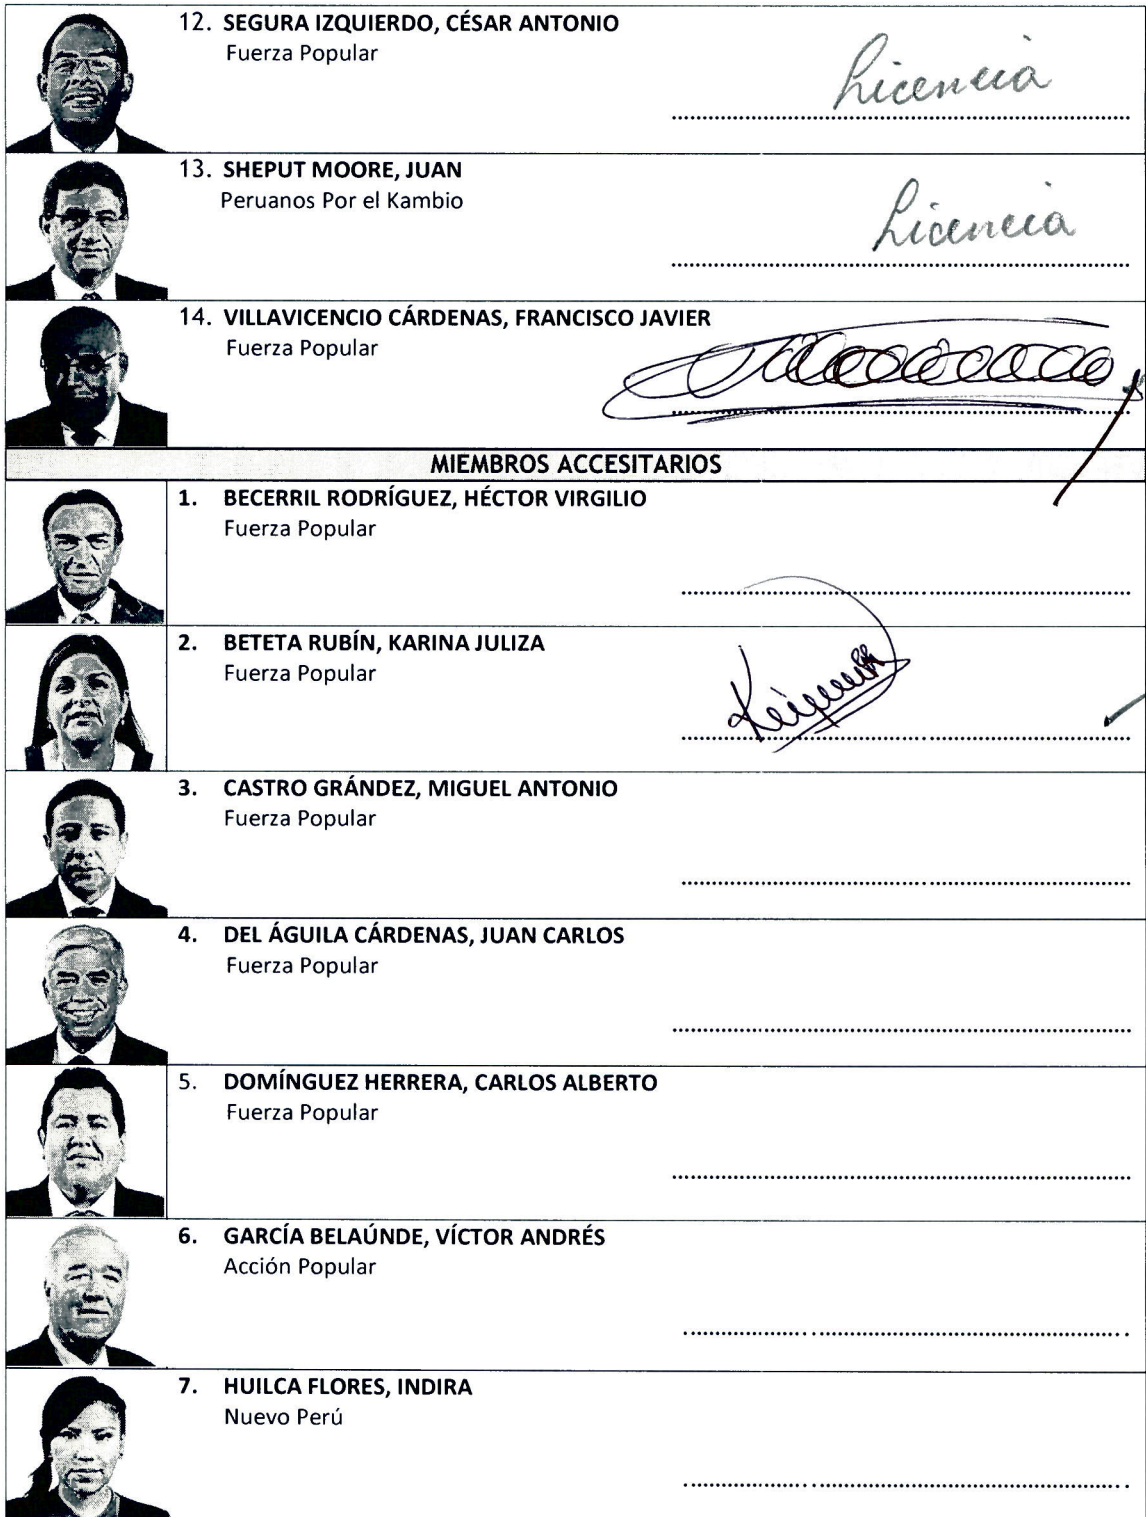 12. SEGURA IZQUIERDO, CÉSAR ANTONIO
Fuerza Popular
Licencia
13. SHEPUT MOORE, JUAN
Peruanos Por el Kambio
Licencia
14. VILLAVICENCIO CÁRDENAS, FRANCISCO JAVIER
Fuerza Popular
MIEMBROS ACCESITARIOS
1. BECERRIL RODRÍGUEZ, HÉCTOR VIRGILIO
Fuerza Popular
2. BETETA RUBÍN, KARINA JULIZA
Fuerza Popular
3. CASTRO GRÁNDEZ, MIGUEL ANTONIO
Fuerza Popular
4. DEL ÁGUILA CÁRDENAS, JUAN CARLOS
Fuerza Popular
5. DOMÍNGUEZ HERRERA, CARLOS ALBERTO
Fuerza Popular
6. GARCÍA BELAÚNDE, VÍCTOR ANDRÉS
Acción Popular
7. HUILCA FLORES, INDIRA
Nuevo Perú